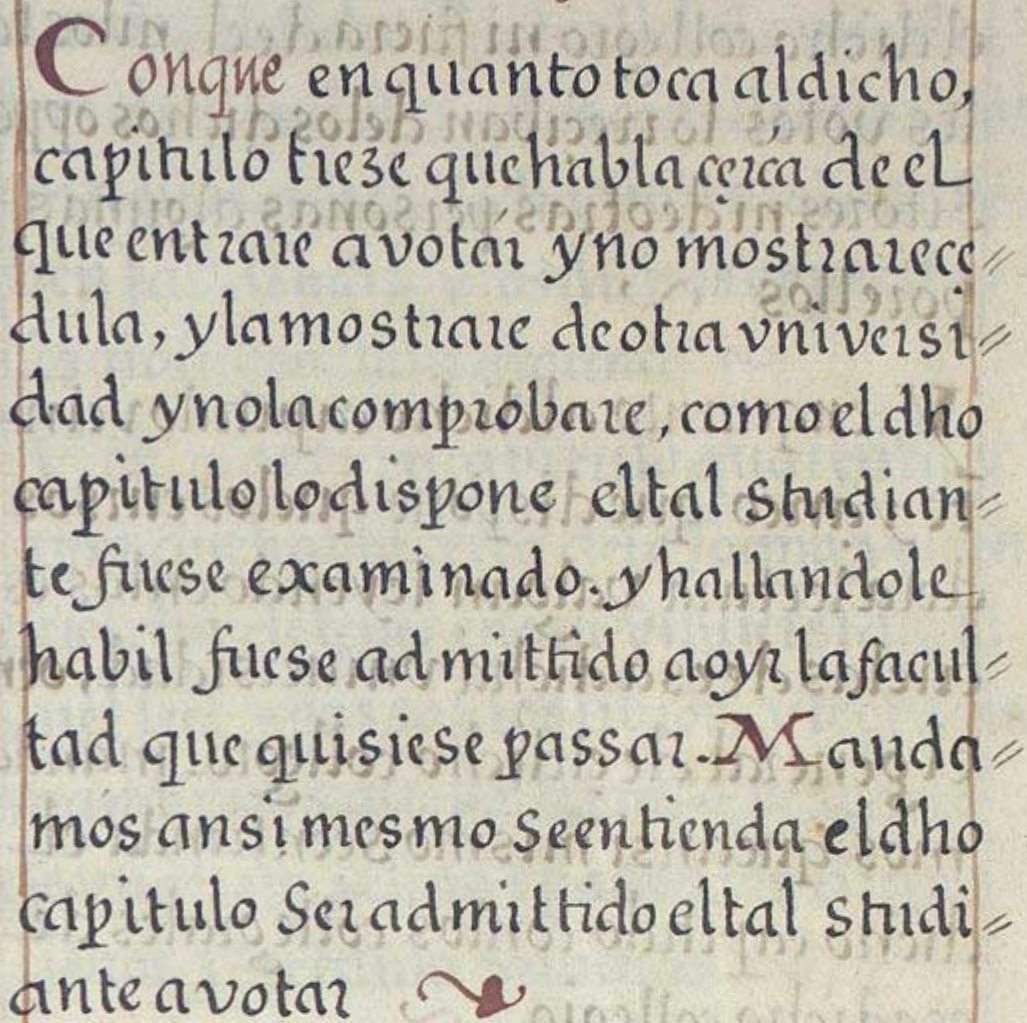 Conque en quanto toca al dicho,
capitulo treze que habla çerca de el
que entrare a votar y no mostrare ce=
dula, y la mostrare de otra vniversi=
dad y no la comprobare, como el dho
capitulo lo dispone el tal studian=
te fuese examinado. y hallandole
habil fuese admittido a oyr la facul=
tad que quisiese passar. Manda=
mos ansi mesmo se entienda el dho
capitulo Ser admittido el tal studi=
ante a votar